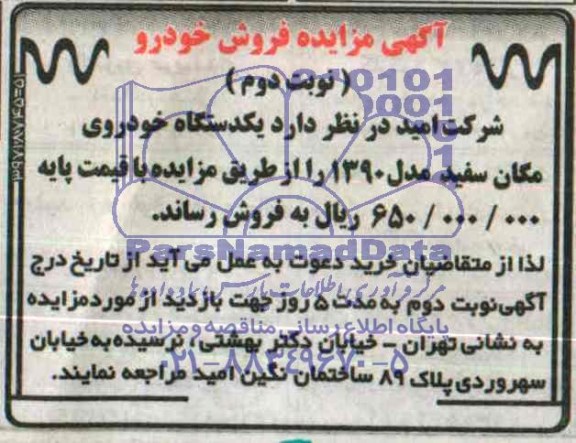 آگهی مزایده فروش خودرو
( نوبت دوم )
شرکت امید در نظر دارد یکدستگاه خودروی
مگان سفید مدل ۱۳۹۰ را از طریق مزایده با قیمت پایه
۶۵۰ / ۰۰۰ / ۰۰۰ ریال به فروش رساند.
لذا از متقاضیان خرید دعوت به عمل می آید از تاریخ درج
آگهی نوبت دوم به مدت ۵ روز جهت بازدید از مورد مزایده
به نشانی تهران - خیابان دکتر بهشتی، نرسیده به خیابان
سهروردی پلاک ۸۹ ساختمان نگین امید مراجعه نمایند.
ParsNamadData
مرکز فرآوری اطلاعات پارس نماد داده ها
پایگاه اطلاع رسانی مناقصه و مزایده
۰۲۱-۸۸۳۴۹۶۷۰-۵